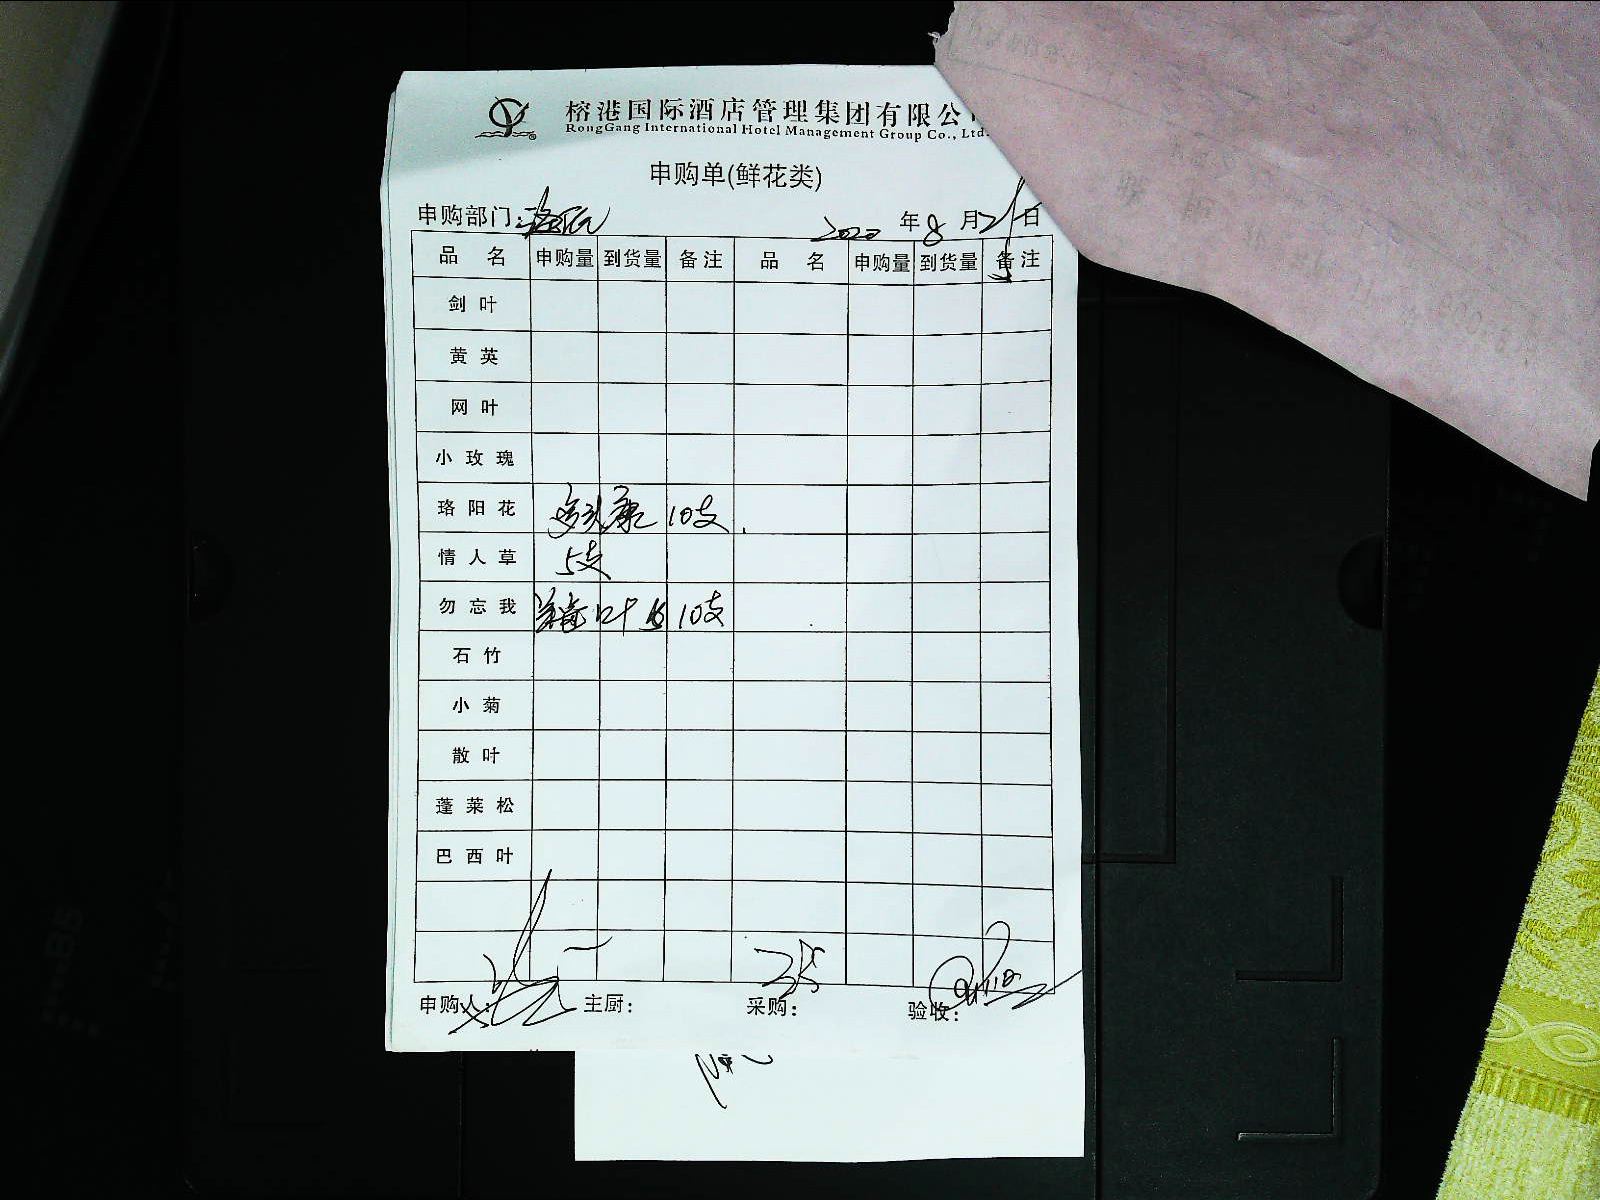 榕港国际酒店管理集团有限公
RongGang International Hotel Management Group Co., Ltd.
申购单(鲜花类)
申购部门: 2020年8月21日
品名 申购量 到货量 备注 品名 申购量 到货量 备注
剑叶
黄英
网叶
小玫瑰
珞阳花 多头康 10支
情人草 5支
勿忘我 叶 10支
石竹
小菊
散叶
蓬莱松
巴西叶
申购人: 主厨: 采购: 验收: